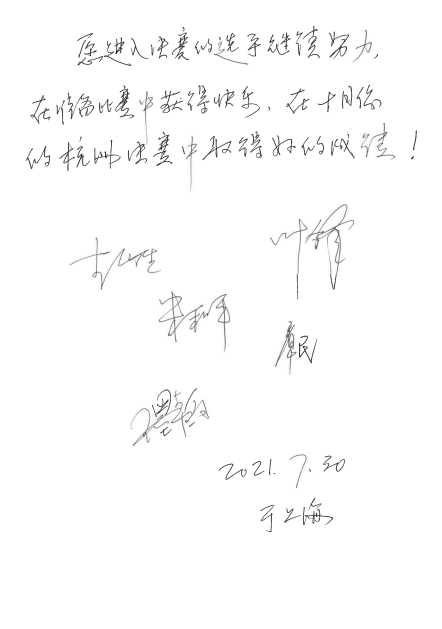 愿进入决赛的选手继续努力,
在准备比赛中获得快乐。在十月份
的杭州决赛中取得好的成绩!
叶锋
2021.7.30
于上海